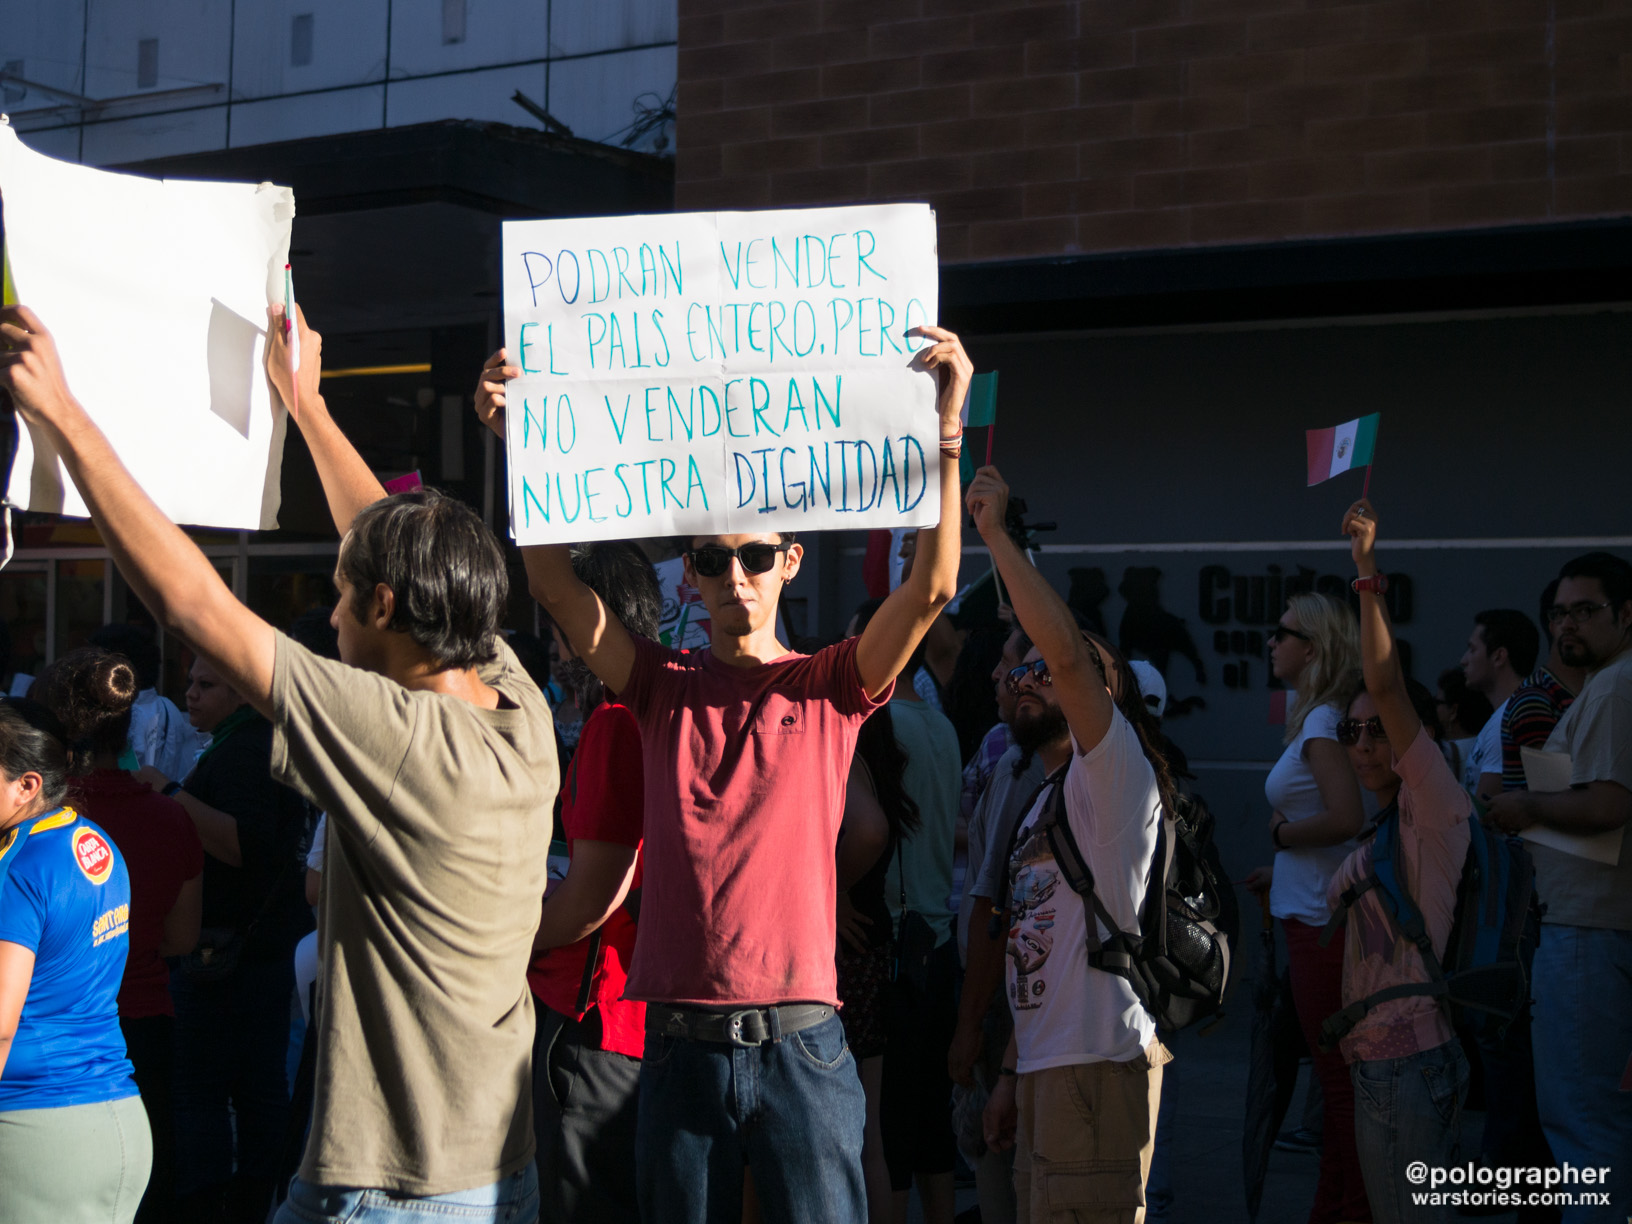 PODRAN VENDER
EL PAIS ENTERO. PERO
NO VENDERAN
NUESTRA DIGNIDAD
Cuidado
con
el
CARTA
BLANCA
@polographer
warstories.com.mx